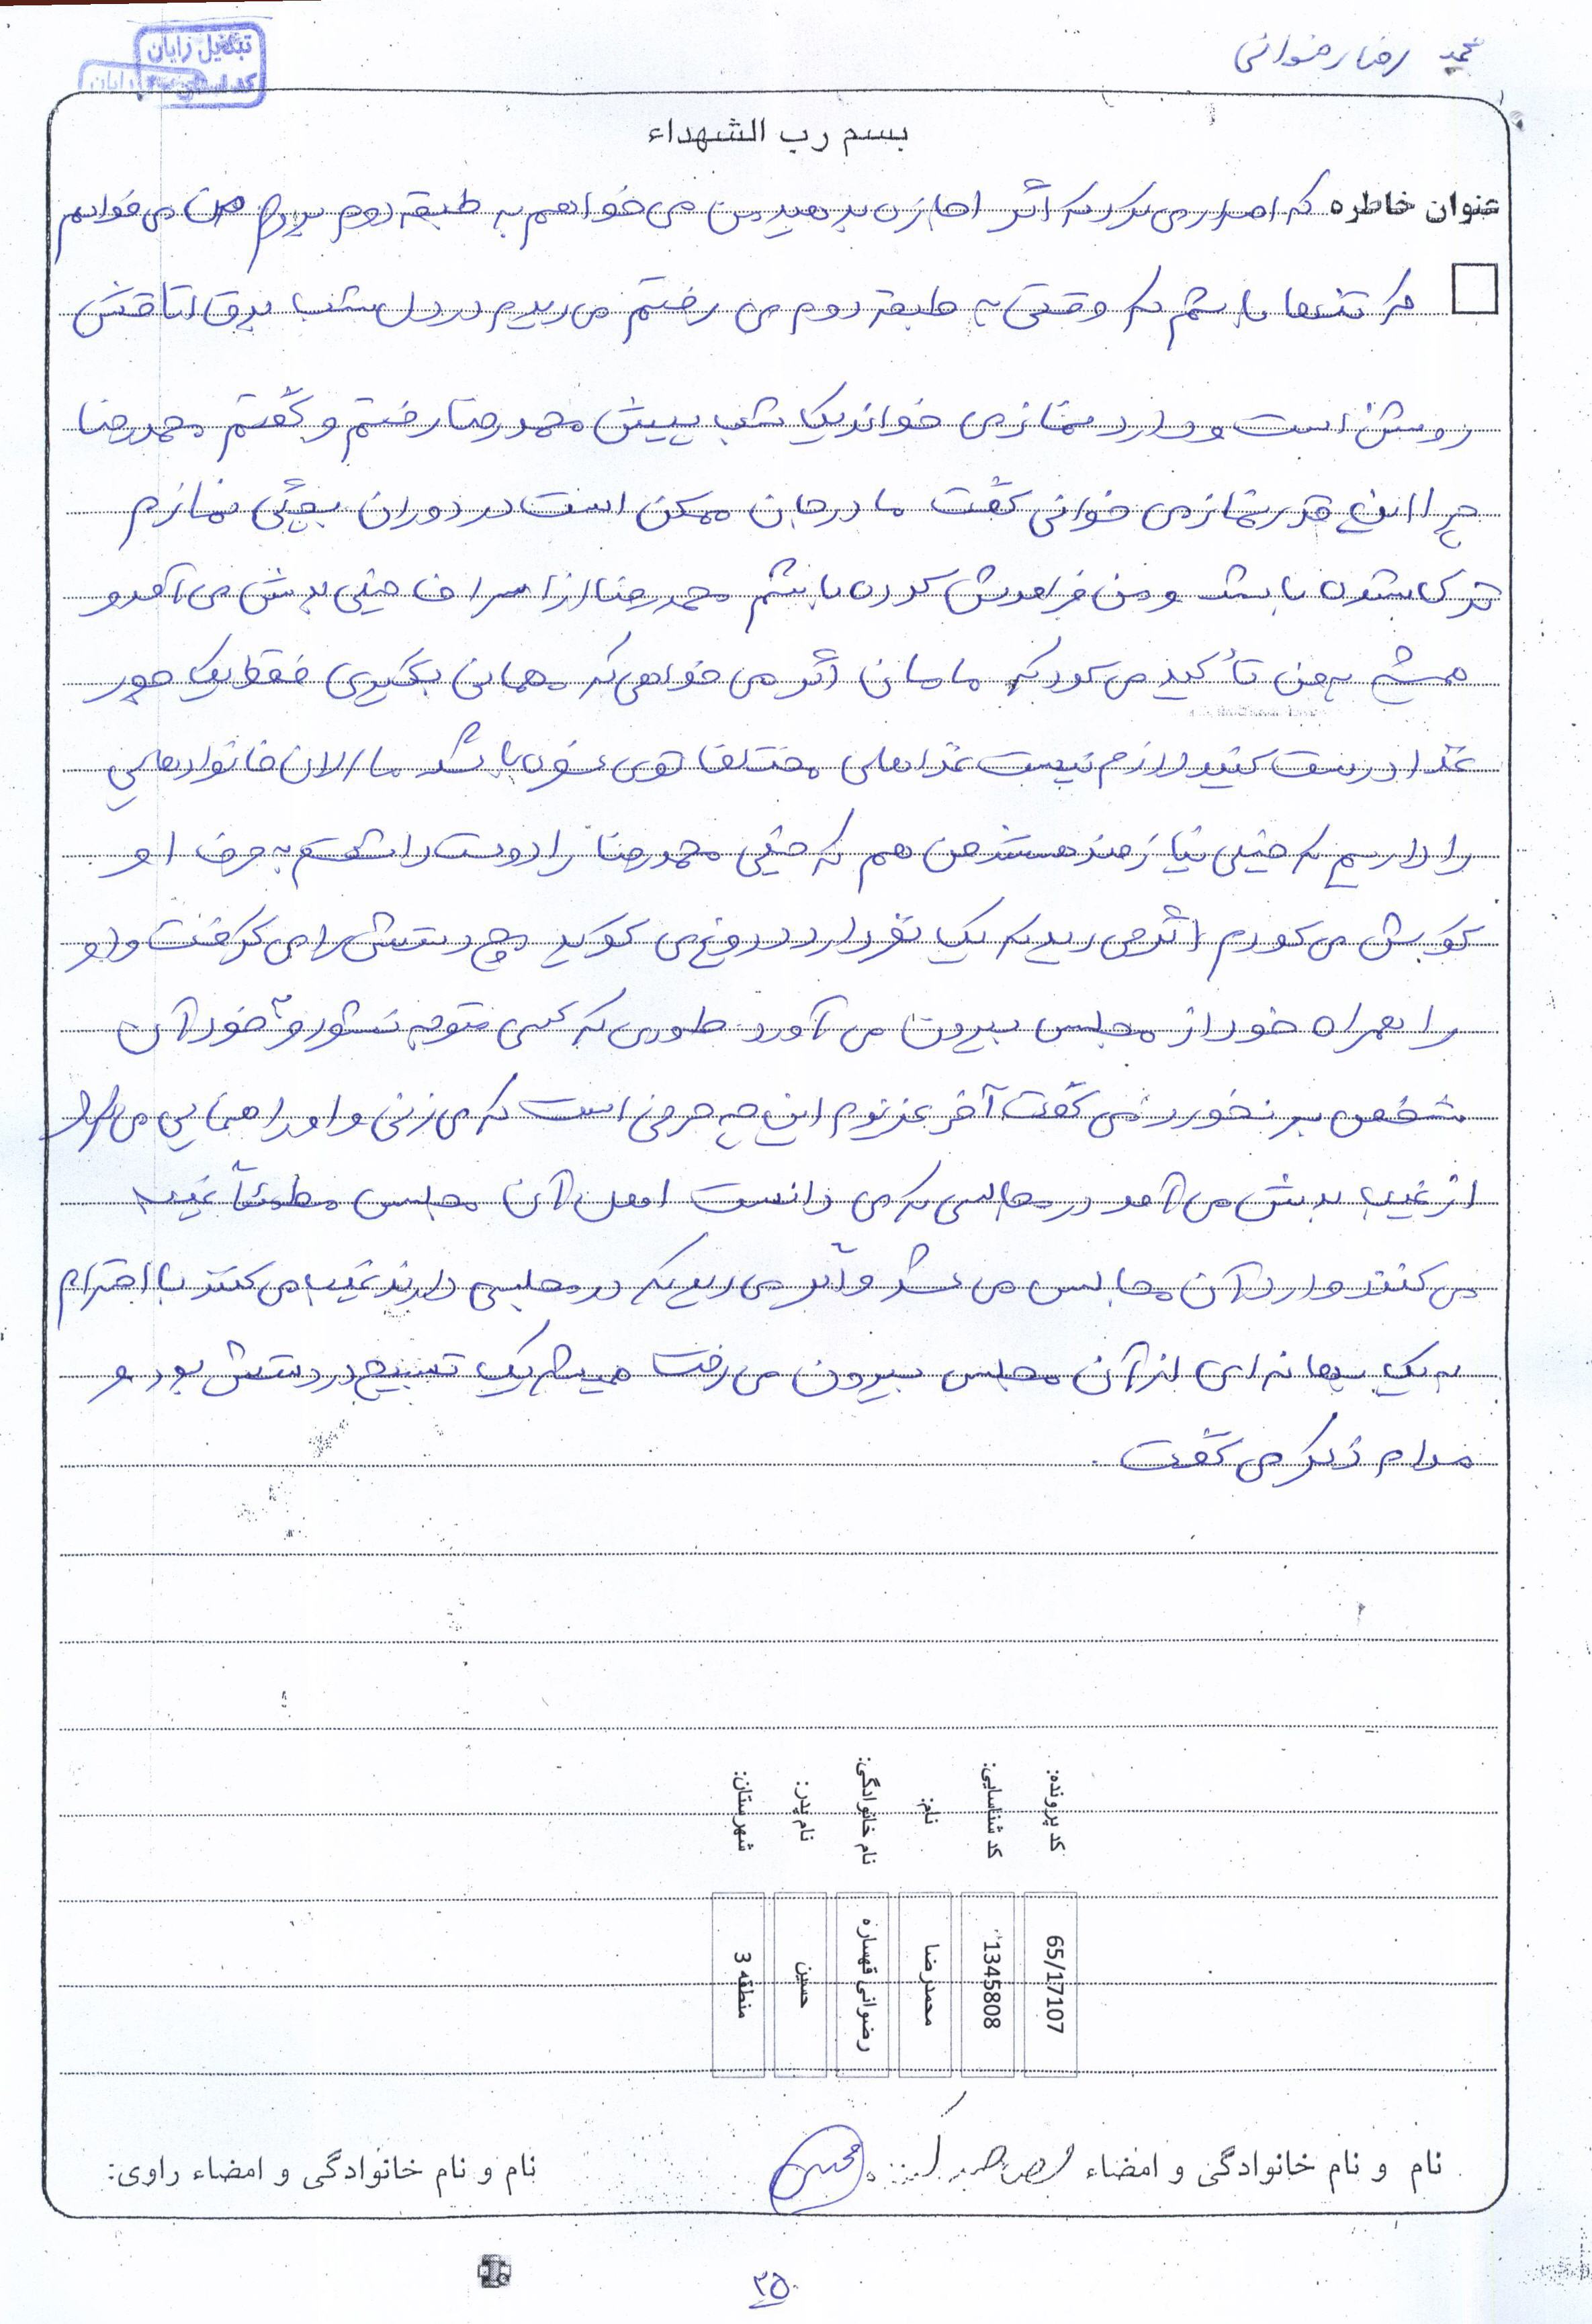 محمد رضا رضوانی
تبدیل زایان
بسم رب الشهداء
عنوان خاطره که اصرار می کرد که اگر اجازه بدهید من می خواهم به طبقه دوم بروم من می خواهم
که تنها باشم که وقتی به طبقه دوم می رفتم می دیدم در دل شب برق اتاقش
روشن است و دارد نماز می خواند یک شب پیش محمدرضا رفتم و گفتم محمدرضا
چرا این قدر نماز می خوانی گفت مادر جان ممکن است در دوران بچگی نمازم
ترک شده باشد و من فراموش کرده باشم محمدرضا از اسراف خیلی بدش می آمد و
همیشه به من تأکید می کرد که مامان اگر می خواهی که مهمانی بگیری فقط یک جور
غذا درست کنید لازم نیست غذاهای مختلف توی سفره باشد ما الان خانواده هایی
را داریم که خیلی نیازمند هستند من هم که خیلی محمدرضا را دوست داشتم به حرف او
گوش می کردم اگر می دید که یک نفر دارد دروغ می گوید مچ دستش را می گرفت و او
را همراه خود از مجلس بیرون می آورد طوری که کسی متوجه نشود و به خود آن
شخص بر نخورد می گفت آخر عزیزم این چه حرفی است که می زنی و او را راهنمایی می کرد
از غیبت بدش می آمد در مجالسی که می دانست اهل آن مجلس مطمئناً غیبت
می کنند وارد آن مجالس می شد و اگر می دید که در مجلسی دارند غیبت می کنند با احترام
به یک بهانه ای از آن مجلس بیرون می رفت همیشه یک تسبیح در دستش بود و
مدام ذکر می گفت .
کد پرونده: 65/17107
کد شناسایی: 1345808
نام: محمدرضا
نام خانوادگی: رضوانی قهساره
نام پدر: حسین
شهرستان: منطقه 3
نام و نام خانوادگی و امضاء
نام و نام خانوادگی و امضاء راوی:
۲۵